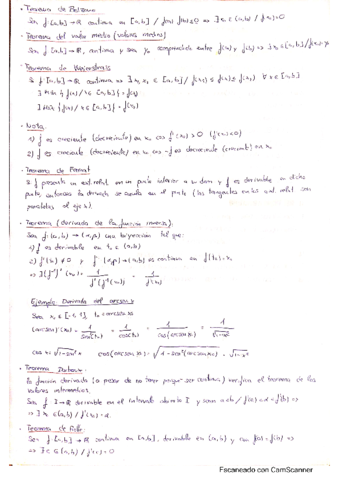 · Teorema de Bolzano
Sea f: [a,b] → ℝ continua en [a,b] / f(a)·f(b) ≤ 0 ⇒ ∃ x₀ ∈ (a,b) / f(x₀)=0
· Teorema del valor medio (valores medios)
Sea f: [a,b] → ℝ, continua y sea y₀ comprendida entre f(a) y f(b) ⇒ ∃ x₀ ∈ (a,b) / f(x₀)=y₀
· Teorema de Weierstrass
Si f: [a,b] → ℝ continua ⇒ ∃ x₁, x₂ ∈ [a,b] / f(x₁) ≤ f(x) ≤ f(x₂) ∀ x ∈ [a,b]
∃ Mín { f(x) / x ∈ [a,b] } = f(x₁)
∃ Máx { f(x) / x ∈ [a,b] } = f(x₂)
· Nota
1) f es creciente (decreciente) en x₀ f'(x₀) > 0 (f'(x₀) < 0)
2) f es creciente (decreciente) en x₀ ⇔ -f es decreciente (creciente) en x₀
· Teorema de Fermat
Si f presenta un ext. relat. en un punto interior a su dom y f es derivable en dicho
punto, entonces la derivada se anula en el punto (las tangentes en los ext. relat. son
paralelas al eje x).
· Teorema (derivada de la función inversa).
Sea f: (a,b) → (α,β) una biyección tal que:
1) f es derivable en x₀ ∈ (a,b)
2) f'(x₀) ≠ 0 y f⁻¹: (α,β) → (a,b) es continua en f(x₀)
Ejemplo: Derivada del arcsen x
Sea x₀ ∈ [-1, 1], t₀ = arcsen x₀
· Teorema Darboux
La función derivada (a pesar de no tener porque ser continua) verifica el teorema de los
valores intermedios.
Sea f: I → ℝ derivable en el intervalo abierto I y sean a<b
· Teorema de Rolle
Sea f: [a,b] → ℝ continua en [a,b], derivable en (a,b) y con f(a) = f(b) ⇒
⇒ ∃ c ∈ (a,b) / f'(c) = 0
Escaneado con CamScanner